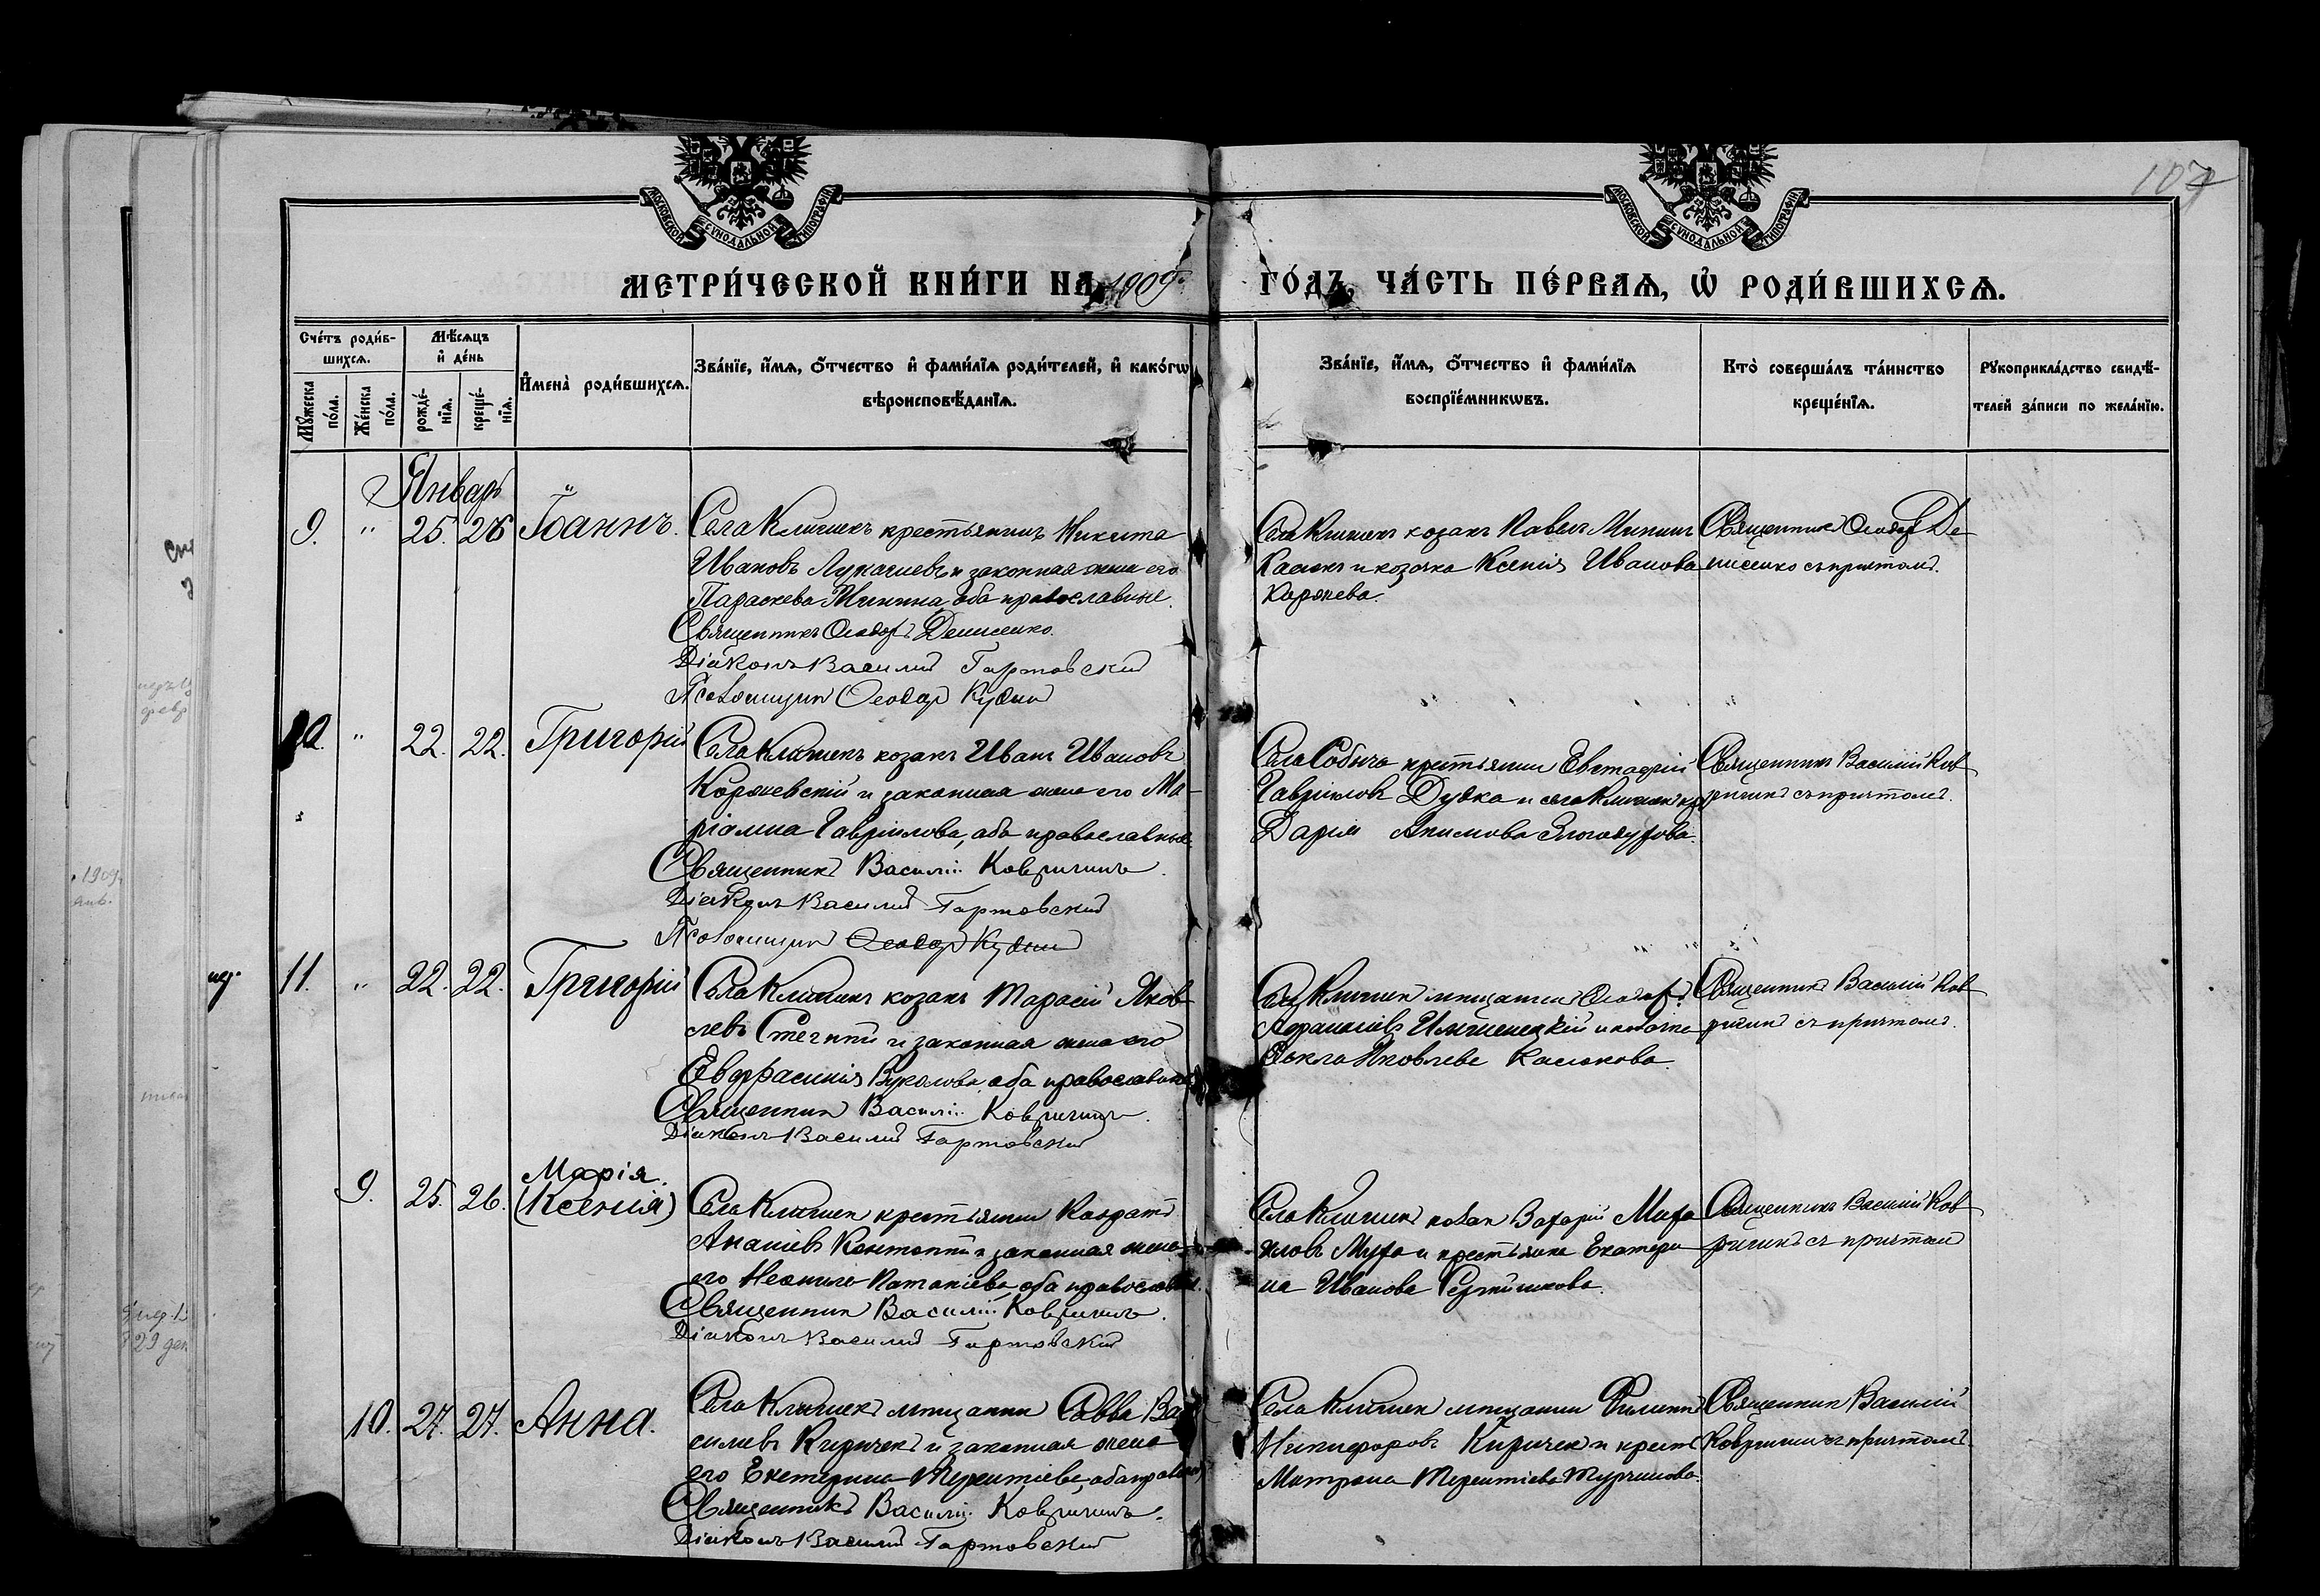 107
МОСКОВСКОЙ СУНОДАЛЬНОЙ ТИПОГРАФІИ
МОСКОВСКОЙ СУНОДАЛЬНОЙ ТИПОГРАФІИ
МЕТРИ́ЧЕСКОЙ КНИ́ГИ НА 1909 г.
ГО́ДЪ, ЧА́СТЬ ПЕ́РВАЯ, Ѡ҆ РОДИ́ВШИХСЯ.
Сче́тъ роди́в-
шихся.
Мѣ́сяцъ
и҆ де́нь
Мꙋ́жеска по́ла.
Же́нска по́ла.
рожде́-нїя.
креще́-нїя.
И҆мена̀ роди́вшихся.
Зва́нїе, и҆́мя, ѻ҆́тчество и҆ фами́лїя роди́телей, и҆ како́гѡ
вѣроисповѣ́данїя.
Зва́нїе, и҆́мя, ѻ҆́тчество и҆ фами́лїя
воспрїе́мникѡвъ.
Кто̀ соверша́лъ та́инство
креще́нїя.
Рꙋкоприкла́дство свидѣ́-
телей за́писи по жела́нїю.
Январь
9. " 25. 26 Іоаннъ.
Села Клишекъ крестьянинъ Никита
Ивановъ Лукачиевъ и законная жена его
Параскева Минина, оба православные.
Священникъ Ѳеодоръ Денисенко.
Діаконъ Василий Гартовский
Псаломщик Ѳеодор Кудин
Села Клишекъ козакъ Павелъ Мининъ
Касюкъ и козачка Ксенія Иванова
Коропева.
Священникъ Ѳеодоръ Де
нисенко съ причтомъ.
10. " 22. 22. Григорій
Села Клишекъ козакъ Иванъ Ивановъ
и законная жена его Ма-
ріамна Гавріилова, оба православные
Священникъ Василій Ковригинъ.
Діаконъ Василий Гартовский
Псаломщик Ѳеодор Кудин
Села Собича крестьянин Евстафій
Гавріиловъ Дудка и села Клишекъ
Дарія Акимова
Священникъ Василій Ков
ригинъ съ причтомъ.
11. " 22. 22. Григорій
Села Клишекъ козакъ Тарасій Яков
левъ и законная жена его
Евфрасинія Вуколова, оба православные
Священник Василій Ковригинъ.
Діаконъ Василий Гартовский
Села Клишек мещанин Ѳеодоръ
Ѳекла Яковлева Касюкова.
Священникъ Василій Ков
ригинъ съ причтомъ.
9. 25. 26. Марія.
(Ксенія)
Села Клишек крестьянин Кондратъ
и законная жена
его Неонила оба православн.
Священник Василій Ковригинъ.
Діаконъ Василий Гартовский
Села Клишекъ козак Захарій Миха
иловъ Муха и крестьянка Екатери
на Иванова
Священникъ Василій Ков
ригинъ съ причтом
10. 27. 27. Анна.
Села Клишекъ мещанин Савва Ва
сильевъ Киричекъ и законная жена
его Екатерина Терентіева, оба правосл.
Священникъ Василій Ковригинъ.
Діаконъ Василий Гартовский
Села Клишек мещанин Филиппъ
Никифоровъ Киричек и крест.
Матрона Терентіева Турчинова.
Священник Василій
Ковригинъ съ причтомъ.